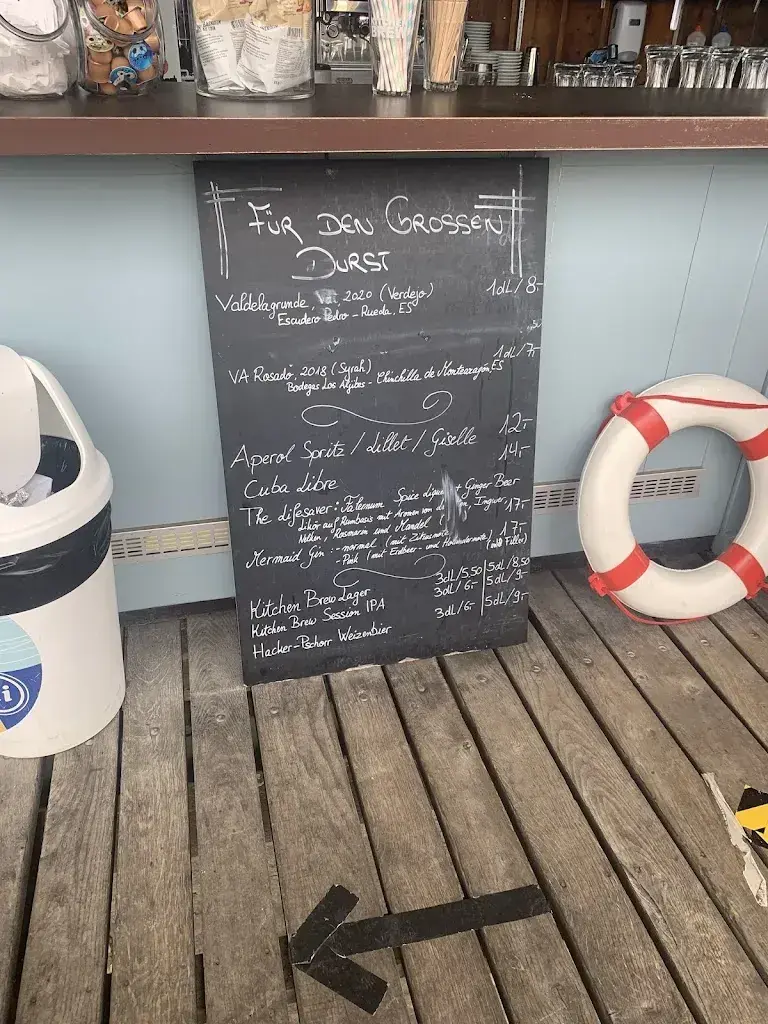 Für den Grossen
Durst
Valdelagrunde, 2020 (Verdejo) 1dL/8-
Escudero Pedro - Rueda, ES
VA Rosado, 2018 (Syrah) 1dL/7-
Bodegas Los Aljibes - Chinchilla de Montearagón, ES
Aperol Spritz / Lillet / Giselle 12.-
Cuba Libre 14.-
The Lifesaver: Falernum Spice + Ginger Beer
Likör auf Rumbasis mit Aromen von Ingwer, 17.-
Nelken, Rosmarin und Mandel
Mermaid Gin: - normal (mit Zitrusnote) 17.-
- Pink (mit Erdbeer- und Holundernote) (inkl Filler)
Kitchen Brew Lager 3dL/5,50 5dL/8,50
Kitchen Brew Session IPA 3dL/6- 5dL/9-
Hacker-Pschorr Weizenbier 3dL/6- 5dL/9-